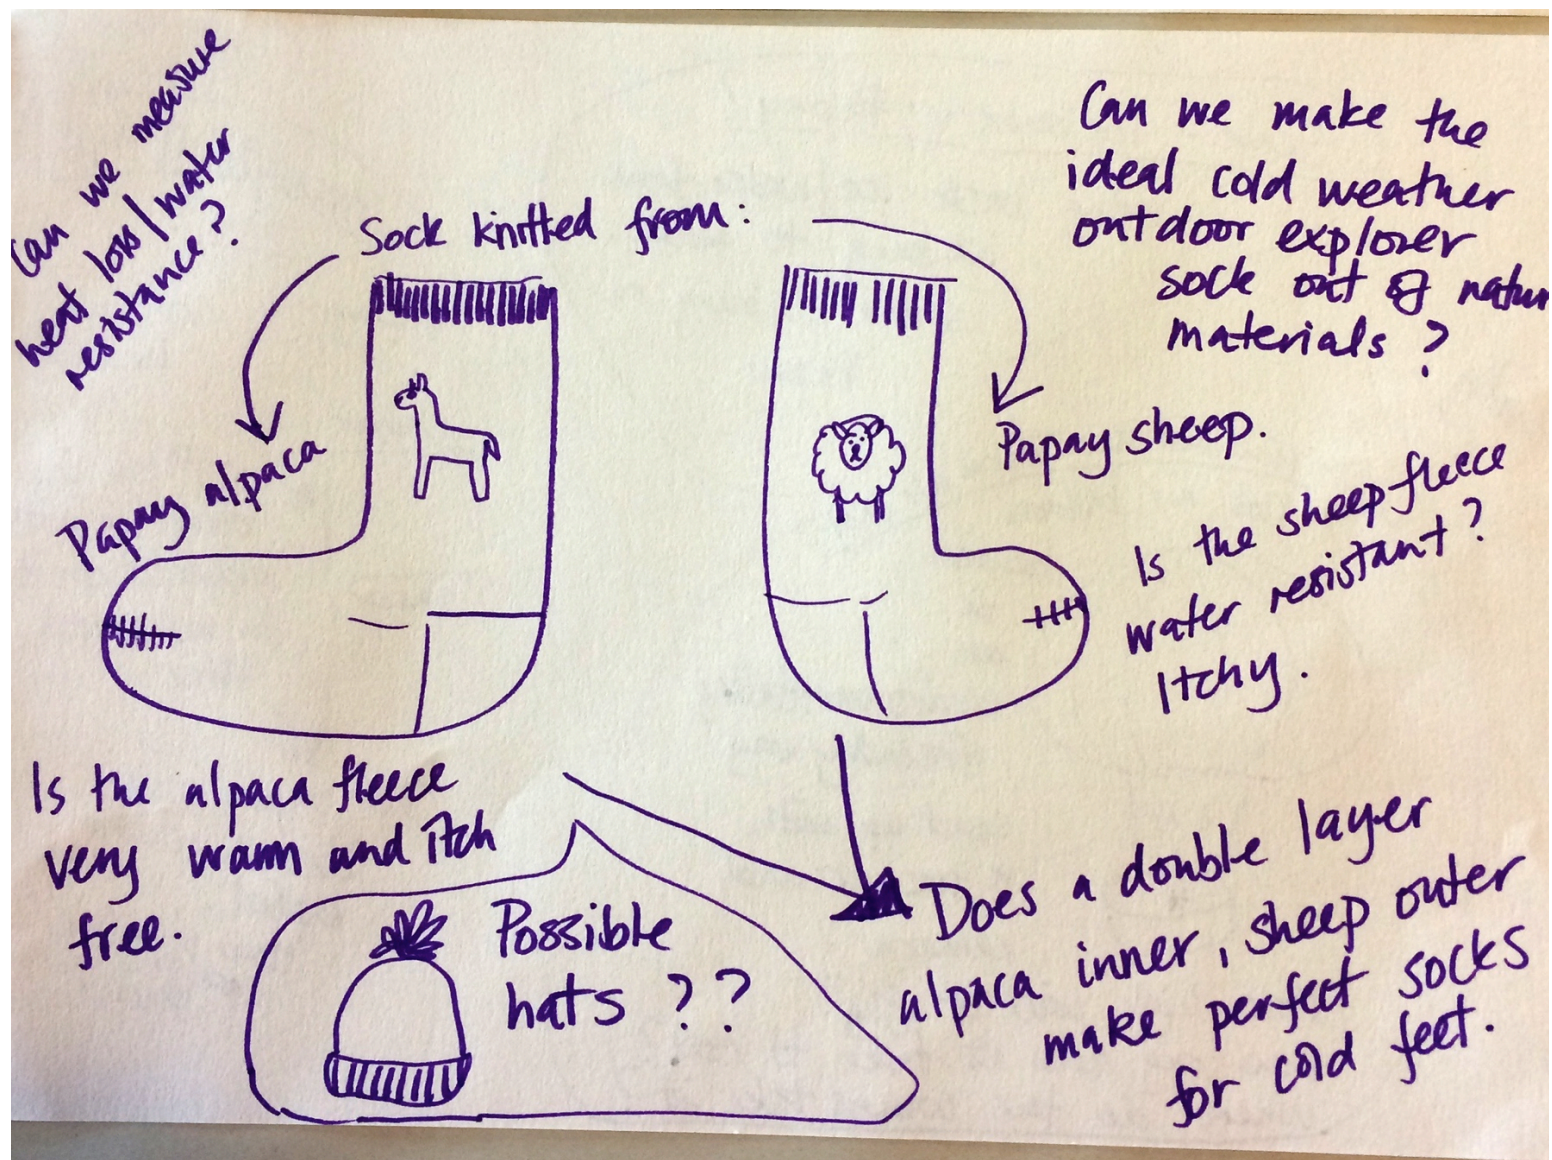 Can we measure
heat loss/water
resistance?
Sock knitted from:
Can we make the
ideal cold weather
outdoor explorer
sock out of natur
materials?
Papay alpaca
Papay sheep.
Is the sheep fleece
water resistant?
Itchy.
Is the alpaca fleece
very warm and itch
free.
Possible
hats ??
Does a double layer
alpaca inner, sheep outer
make perfect socks
for cold feet.